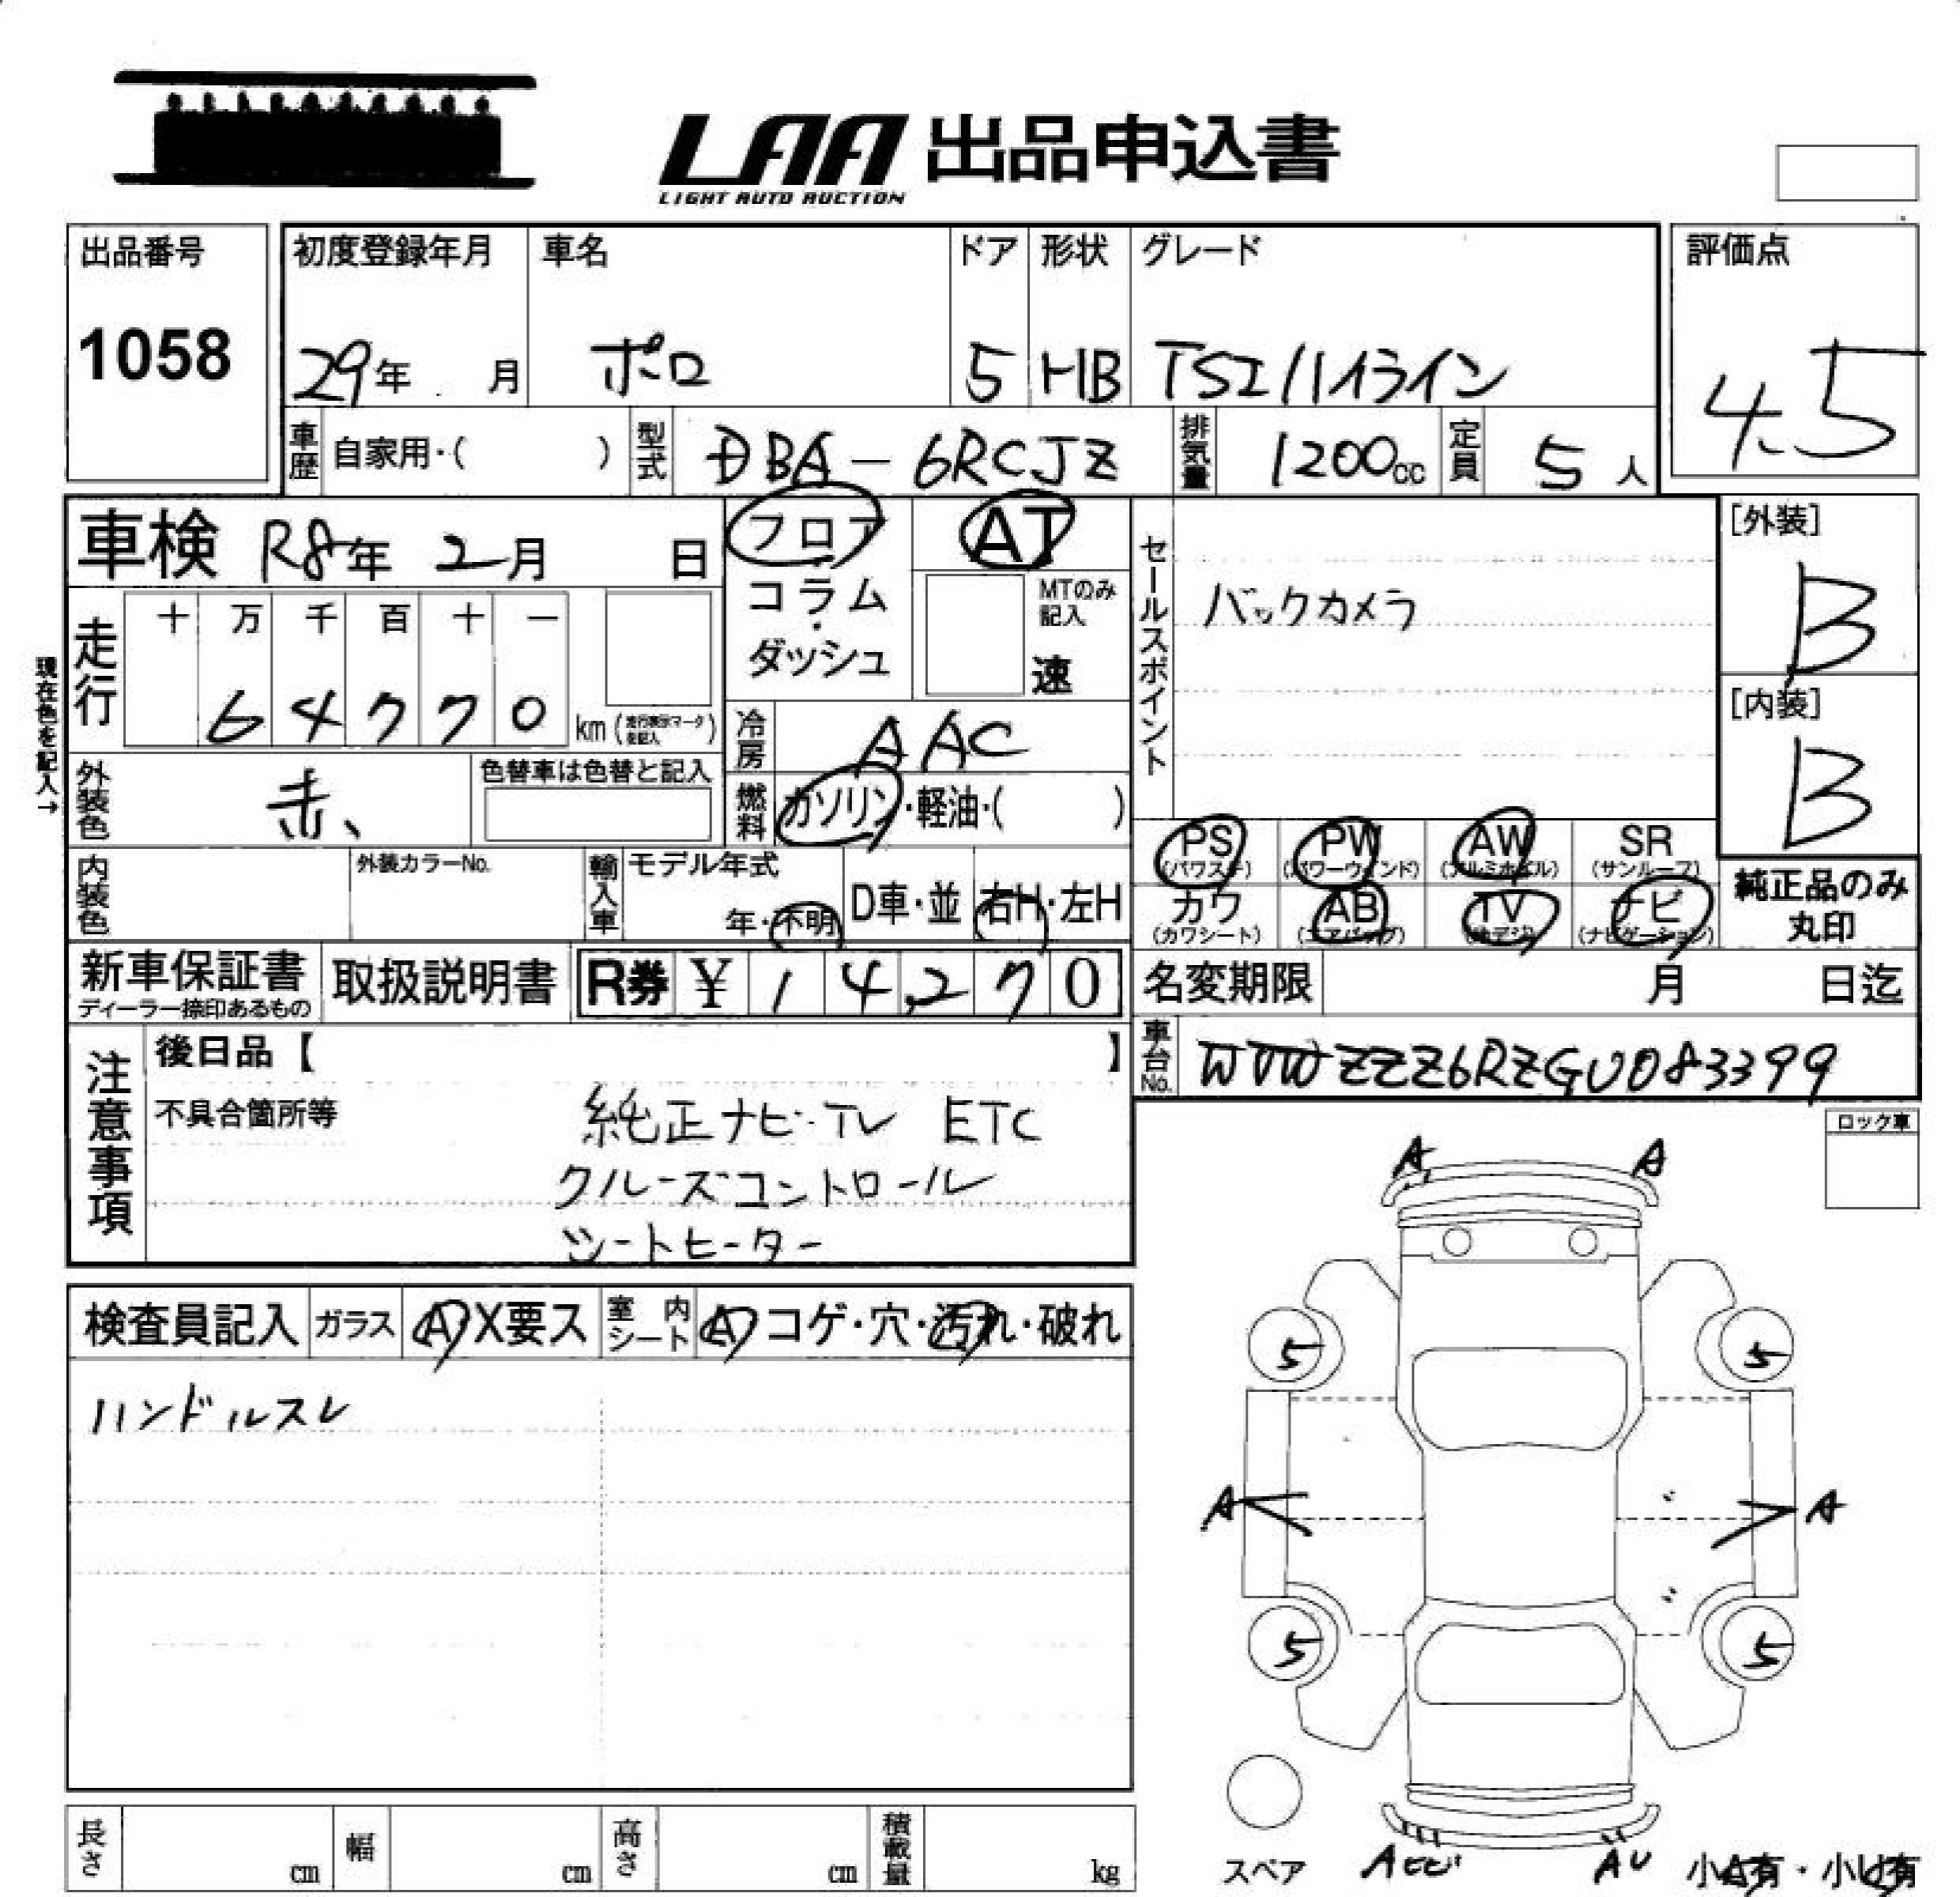 LAA 出品申込書
LIGHT AUTO AUCTION
出品番号
1058
初度登録年月
29年 月
車名
ポロ
ドア
5
形状
HB
グレード
TSI ハイライン
評価点
4.5
車歴 自家用・( )
型式 DBA-6RCJZ
排気量 1200cc
定員 5人
車検 R8年 2月 日
フロア
コラム
・
ダッシュ
AT
MTのみ
記入
速
現在色を記入→
走行
十 万 千 百 十 一
6 4 7 7 0
km (走行表示マークを記入)
冷房 AAC
外装色 赤、
色替車は色替と記入
燃料 ガソリン・軽油・( )
セールスポイント
バックカメラ
[外装]
B
[内装]
B
PS (パワステ)
PW (パワーウィンド)
AW (アルミホイル)
SR (サンルーフ)
カワ (カワシート)
AB (エアバッグ)
TV (地デジ)
ナビ (ナビゲーション)
純正品のみ
丸印
内装色
外装カラーNo.
輸入車 モデル年式
年・不明
D車・並
右H・左H
新車保証書
ディーラー捺印あるもの
取扱説明書
R券 ¥ 1 4,2 7 0
名変期限 月 日迄
車台No. WVWZZZ6RZGU083399
注意事項
後日品【 】
不具合箇所等
純正ナビ・TV ETC
クルーズコントロール
シートヒーター
ロック車
検査員記入
ガラス A X要ス
室内シート A コゲ・穴・汚れ・破れ
ハンドルスレ
A A
5 5
A A
5 5
スペア
AU
小A有・小U有
長さ cm
幅 cm
高さ cm
積載量 kg